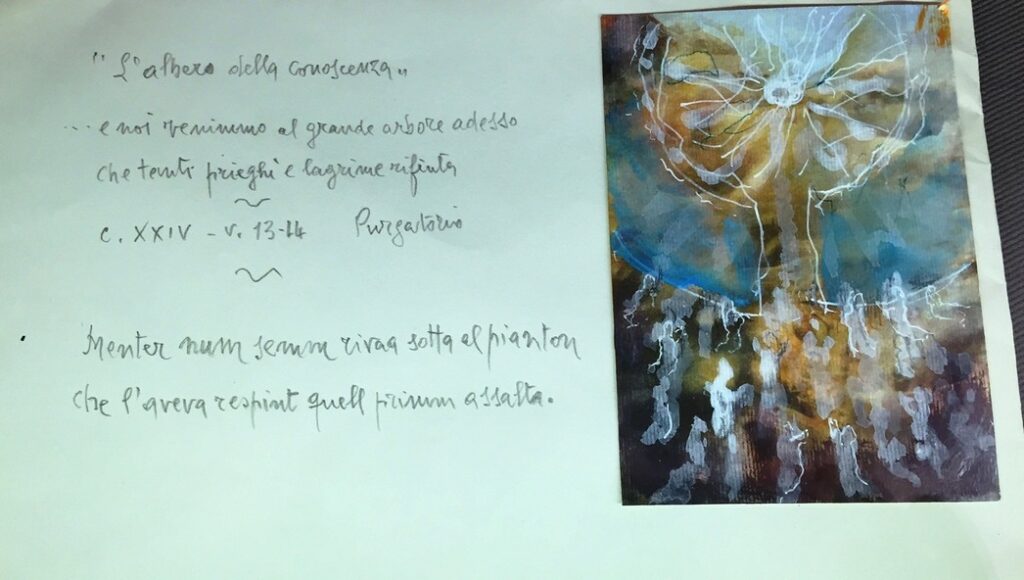 "L'albero della conoscenza"
... e noi venimmo al grande arbore adesso
che tanti prieghi e lagrime rifiuta
c. XXIV - v. 13-14 Purgatorio
Menter num semm rivaa sotta al pianton
che l'aveva respint quell primm assalta.